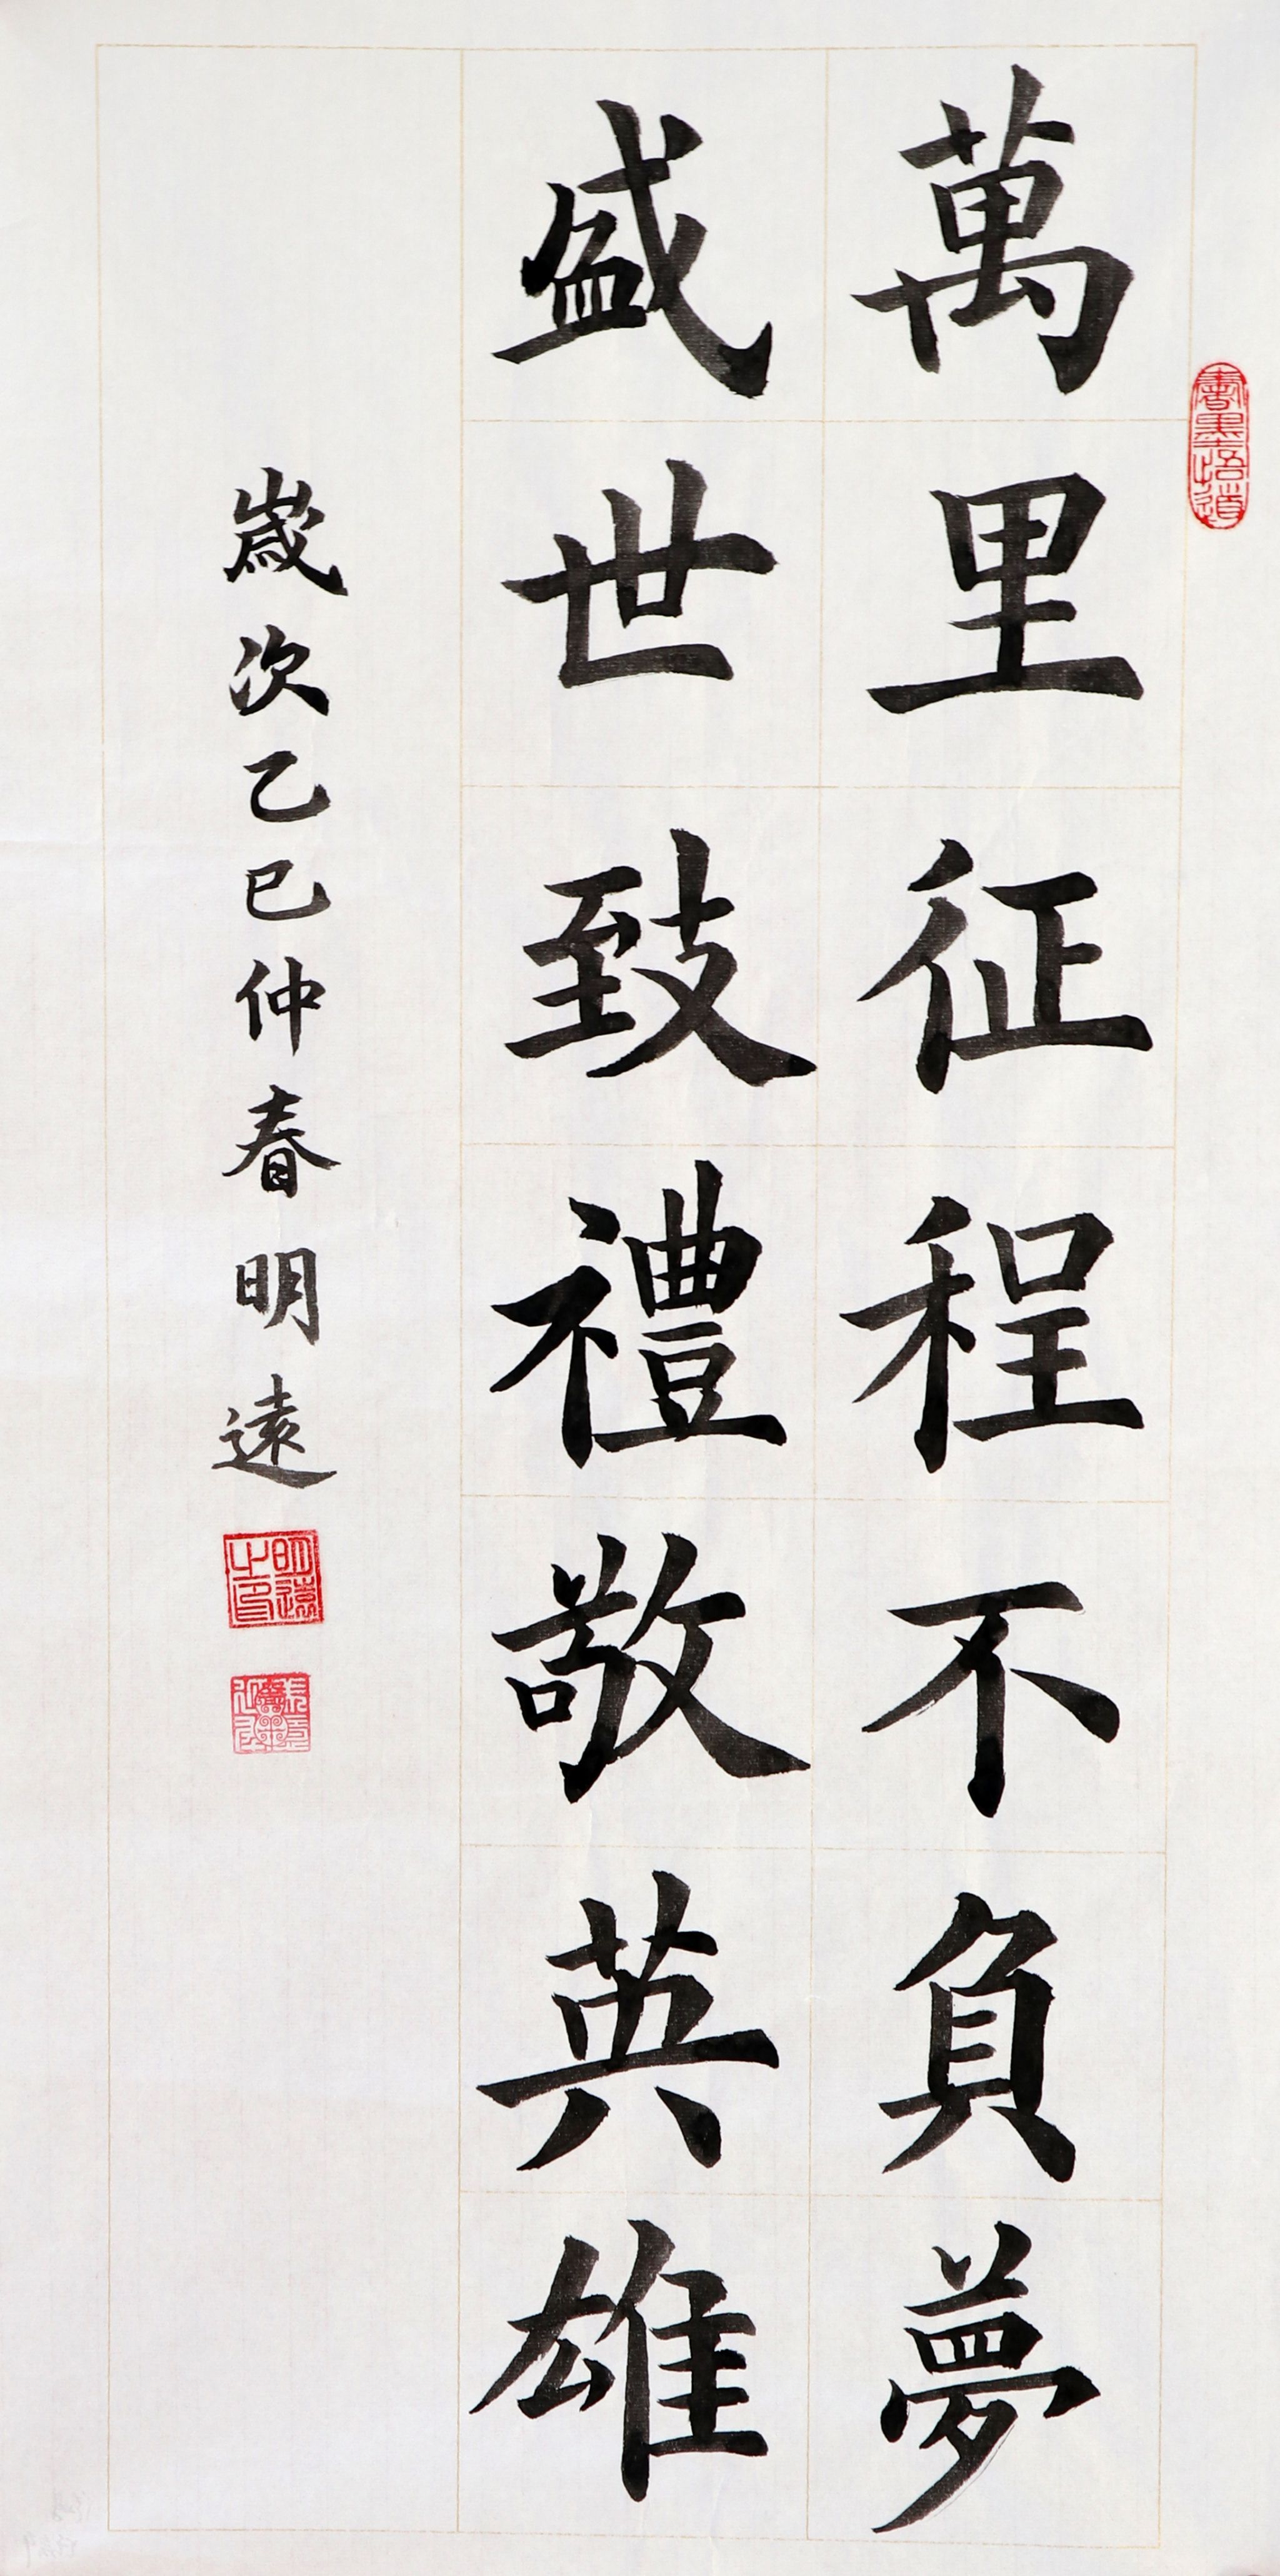 萬里征程不負夢
盛世致禮敬英雄
歲次乙巳仲春明遠
明遠之印